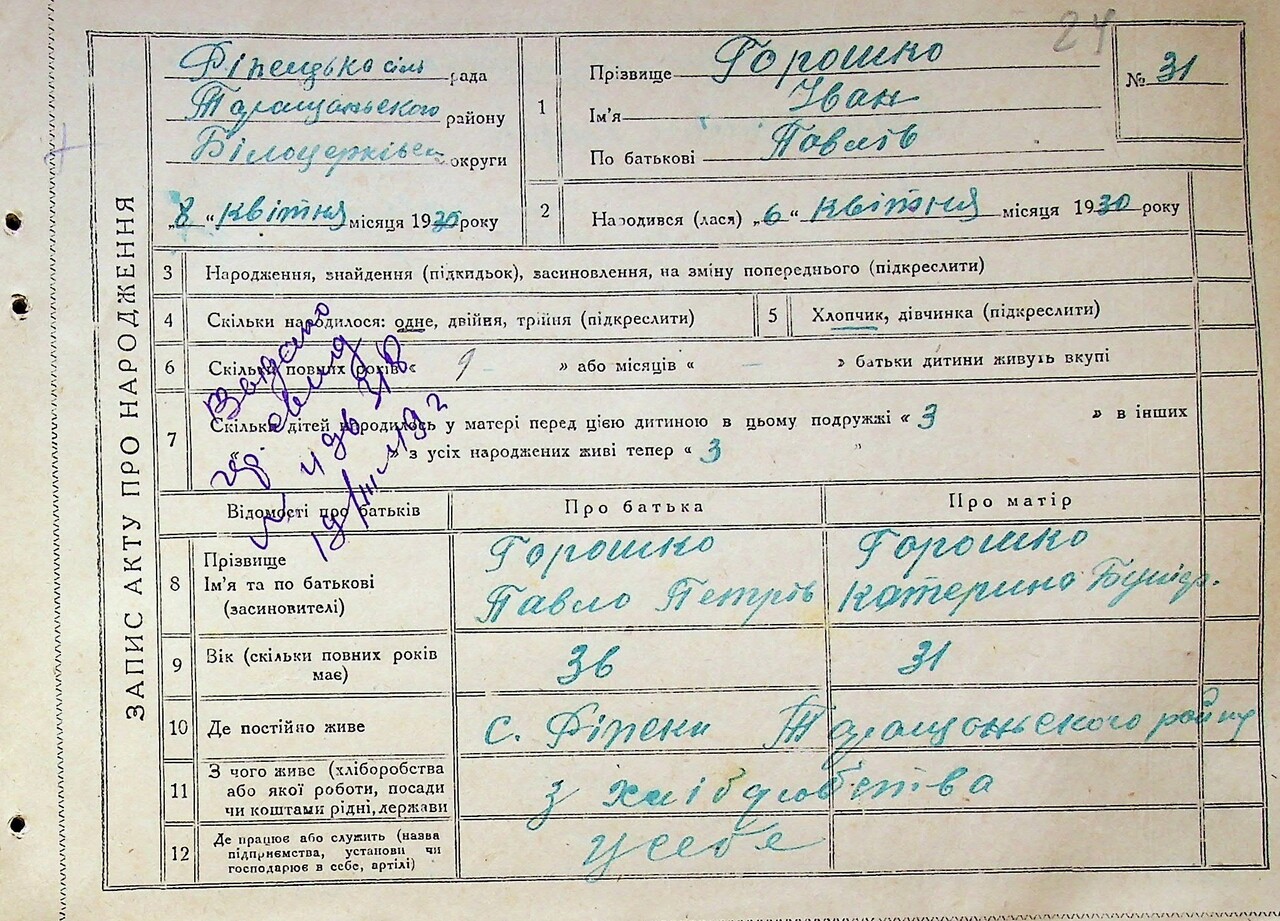 24
ЗАПИС АКТУ ПРО НАРОДЖЕННЯ
сіль рада
Таращанського району
Білоцерківськ округи
„8 “ квітня місяця 1930 року
1
Прізвище Горошко
Ім'я Іван
По батькові Павлів
№ 31
2
Народився (лася) „6 “ квітня місяця 1930 року
3 Народження, знайдення (підкидьок), засиновлення, на зміну попереднього (підкреслити)
4 Скільки народилося: одне, двійня, трійня (підкреслити)
5 Хлопчик, дівчинка (підкреслити)
6 Скільки повних років « 9 – » або місяців « — » батьки дитини живуть вкупі
7 Скільки дітей народилось у матері перед цією дитиною в цьому подружжі « 3 » в інших
„ » з усіх народжених живі тепер « 3 »
Видано
Відомості про батьків
Про батька
Про матір
8
Прізвище
Ім'я та по батькові
(засиновителі)
Горошко
Павло Петрів
Горошко
Катерина
9 Вік (скільки повних років має)
36
31
10 Де постійно живе
с. Таращанського району
11
З чого живе (хліборобства
або якої роботи, посади
чи коштами рідні, держави
з хліборобства
12
Де працює або служить (назва
підприємства, установи чи
господарює в себе, артілі)
у себе